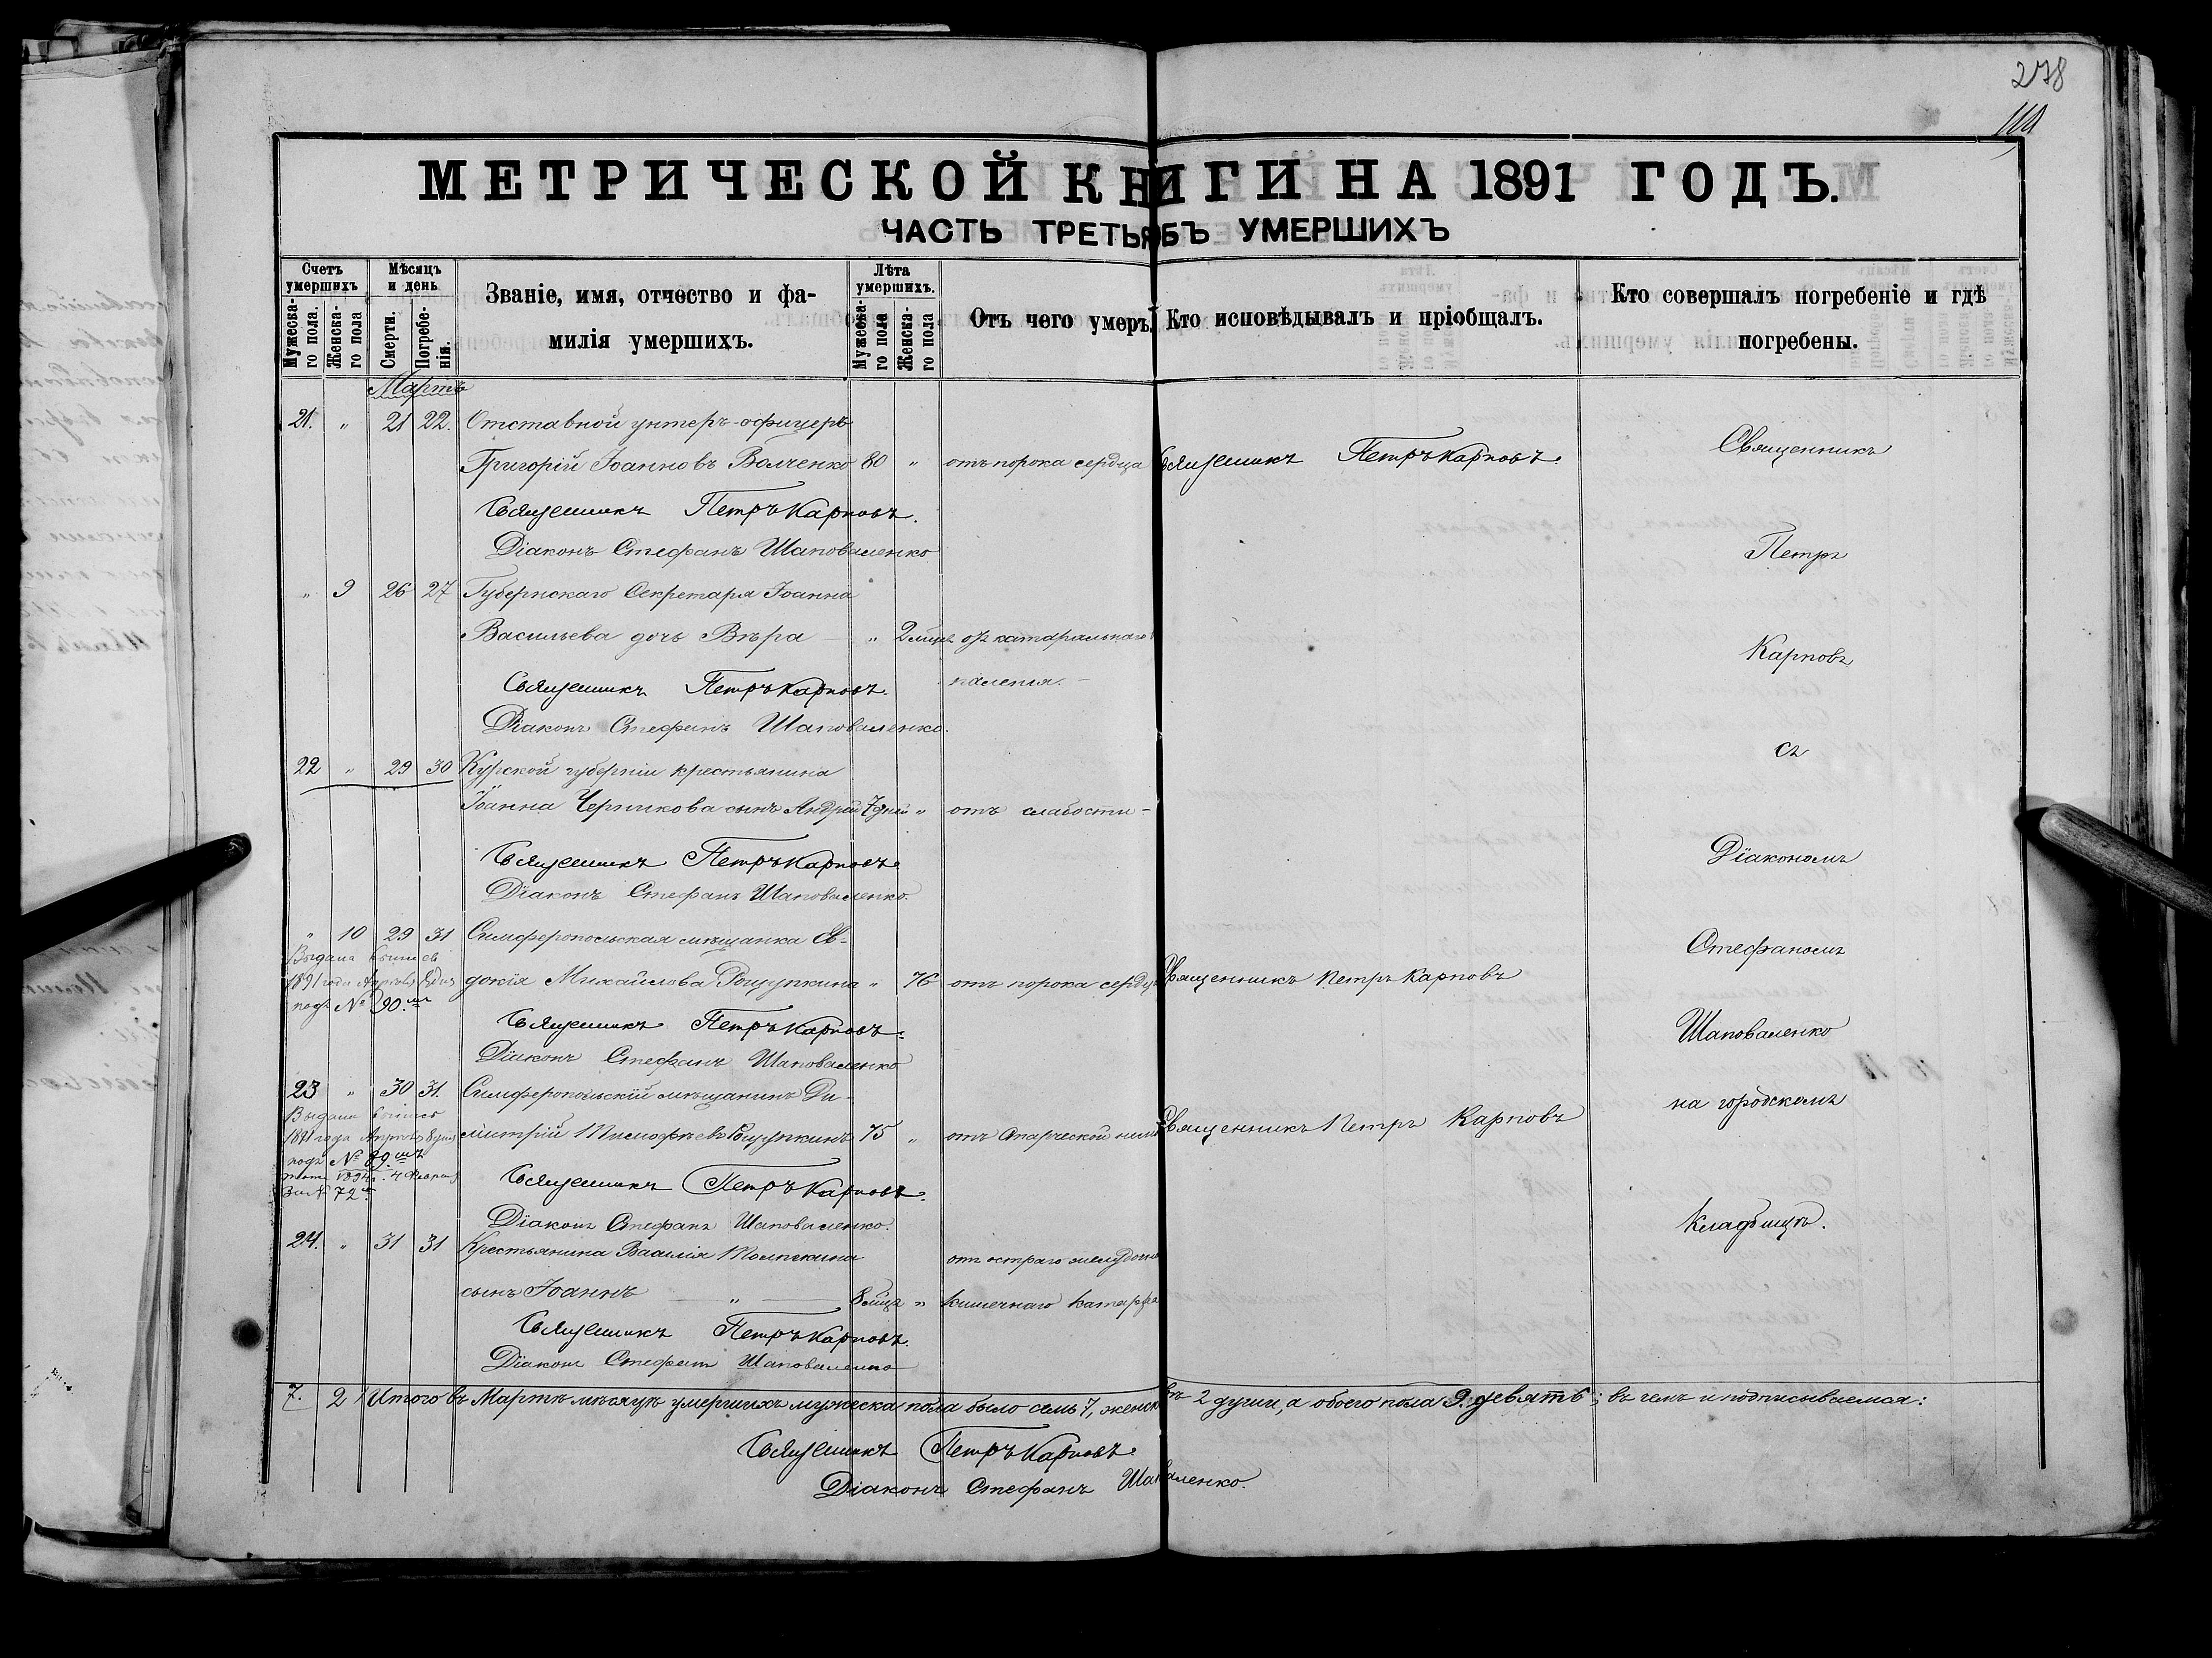 278
МЕТРИЧЕСКОЙ КНИГИ НА 1891 ГОДЪ.
ЧАСТЬ ТРЕТЬЯ БЪ УМЕРШИХЪ
Счетъ умершихъ
Мужеска-го пола.
Женска-го пола
Мѣсяцъ и день
Смерти.
Погребе-нія.
Званіе, имя, отчество и фа-
милія умершихъ.
Лѣта умершихъ.
Мужеска-го пола
Женска-го пола
Отъ чего умеръ
Кто исповѣдывалъ и пріобщалъ.
Кто совершалъ погребеніе и гдѣ
погребены.
Мартъ
21. " 21 22. Отставной унтеръ-офицеръ
Григорій Іоанновъ Волченко 80 " отъ порока сердца Священникъ Петръ Карповъ.
Священникъ Петръ Карповъ.
Діаконъ Стефанъ Шаповаленко
" 9 26 27 Губернскаго Секретаря Іоанна
Васильева дочь Вѣра " 2 мѣся отъ катаральнаго
паленія.
Священникъ Петръ Карповъ.
Діаконъ Стефанъ Шаповаленко.
22 " 29 30 Курской губерніи крестьянина
Іоанна Черникова сынъ Андрей 7 дней " отъ слабости
Священникъ Петръ Карповъ
Діаконъ Стефанъ Шаповаленко.
" 10 29 31 Симферопольская мѣщанка Ев-
докія Михайлова Рощупкина " 76 отъ порока сердц Священникъ Петръ Карповъ
Выдана
1891 года Апрѣля 8 дня
подъ № 90.
Священникъ Петръ Карповъ.
Діаконъ Стефанъ Шаповаленко
23 " 30 31. Симферопольскій мѣщанинъ Ди-
митрій Тимофѣевъ Рощупкинъ 75 " отъ Священникъ Петръ Карповъ
Выдана
1891 года Апрѣля 8 дня
подъ № 89.
за № 72
Священникъ Петръ Карповъ.
Діаконъ Стефанъ Шаповаленко.
24. " 31 31 Крестьянина Василія
отъ остраго желудочно
сынъ Іоаннъ " 8 мѣся " кишечнаго катарра
Священникъ Петръ Карповъ.
Діаконъ Стефанъ Шаповаленко
Священникъ
Петръ
Карповъ
съ
Діакономъ
Стефаномъ
Шаповаленко
на городскомъ
кладбищѣ.
7. 2 Итого въ Мартѣ мѣсяцѣ умершихъ мужеска пола было семь 7, женск 2 души, а обоего пола 9: девять; въ чемъ и подписываемся:
Священникъ Петръ Карповъ.
Діаконъ Стефанъ Шаповаленко.